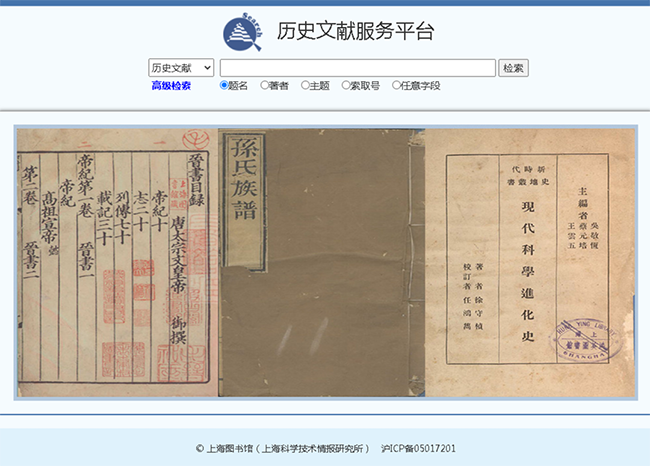 Search
历史文献服务平台
历史文献
检索
高级检索
题名
著者
主题
索取号
任意字段
晉書目録
唐太宗文皇帝 御撰
帝紀十
志二十
列傳七十
載記三十
帝紀第一卷 晉書一
帝紀
高祖宣帝
第二卷 晉書二
孫氏族譜
新時代
史地叢書
主編者
吳敬恆
蔡元培
王雲五
現代科學進化史
著者 徐守楨
校訂者 任鴻雋
SHANGHAI
© 上海图书馆（上海科学技术情报研究所） 沪ICP备05017201